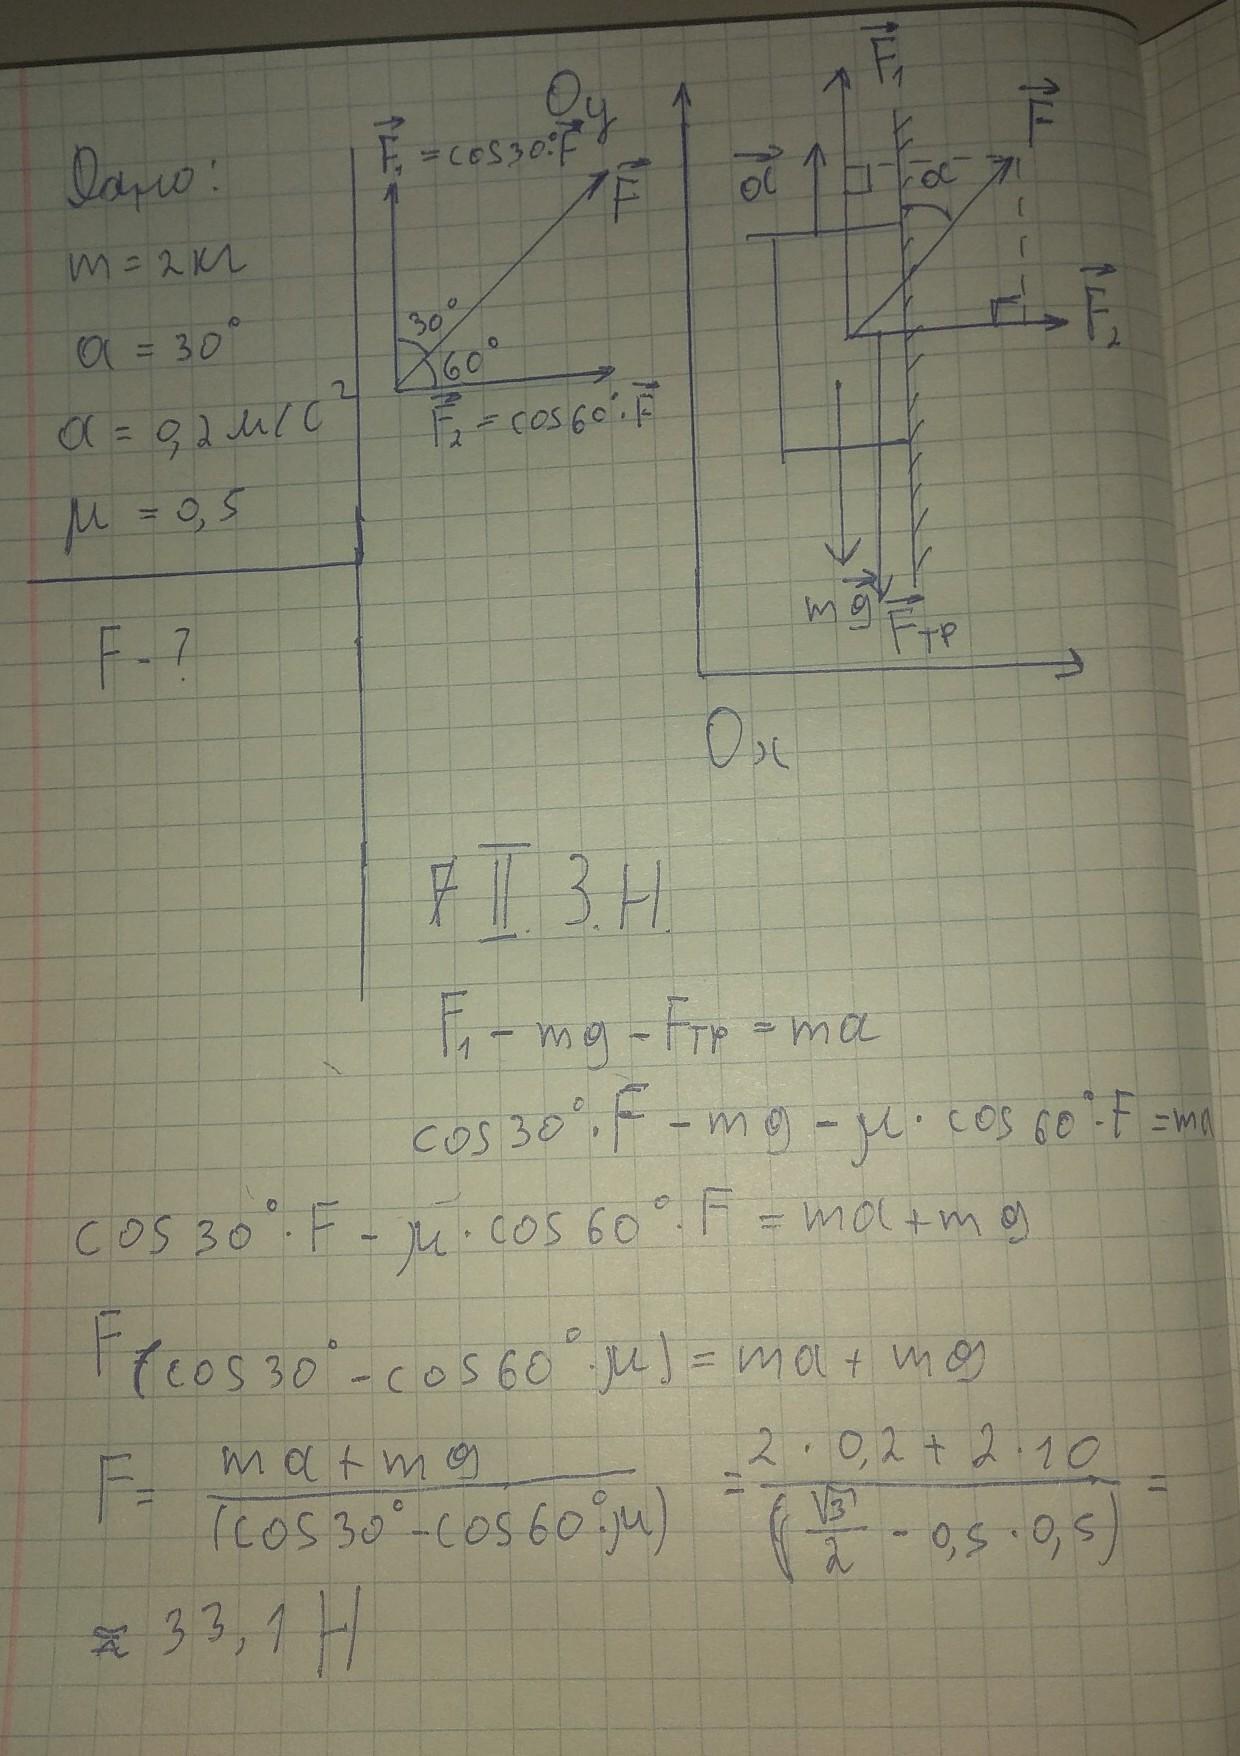 Дано:
m = 2 кг
α = 30°
a = 0,2 м/с²
μ = 0,5
F - ?
F₁ = cos30°·F
F
30°
60°
F₂ = cos60°·F
Oy
F₁
F
a
α
F₂
mg
Fтр
Ox
II З.Н.
F₁ - mg - Fтр = ma
cos30°·F - mg - μ·cos60°·F = ma
cos30°·F - μ·cos60°·F = ma + mg
F(cos30° - cos60°·μ) = ma + mg
F = (ma + mg)/(cos30° - cos60°·μ) = (2·0,2 + 2·10)/(√3/2 - 0,5·0,5) =
≈ 33,1 Н